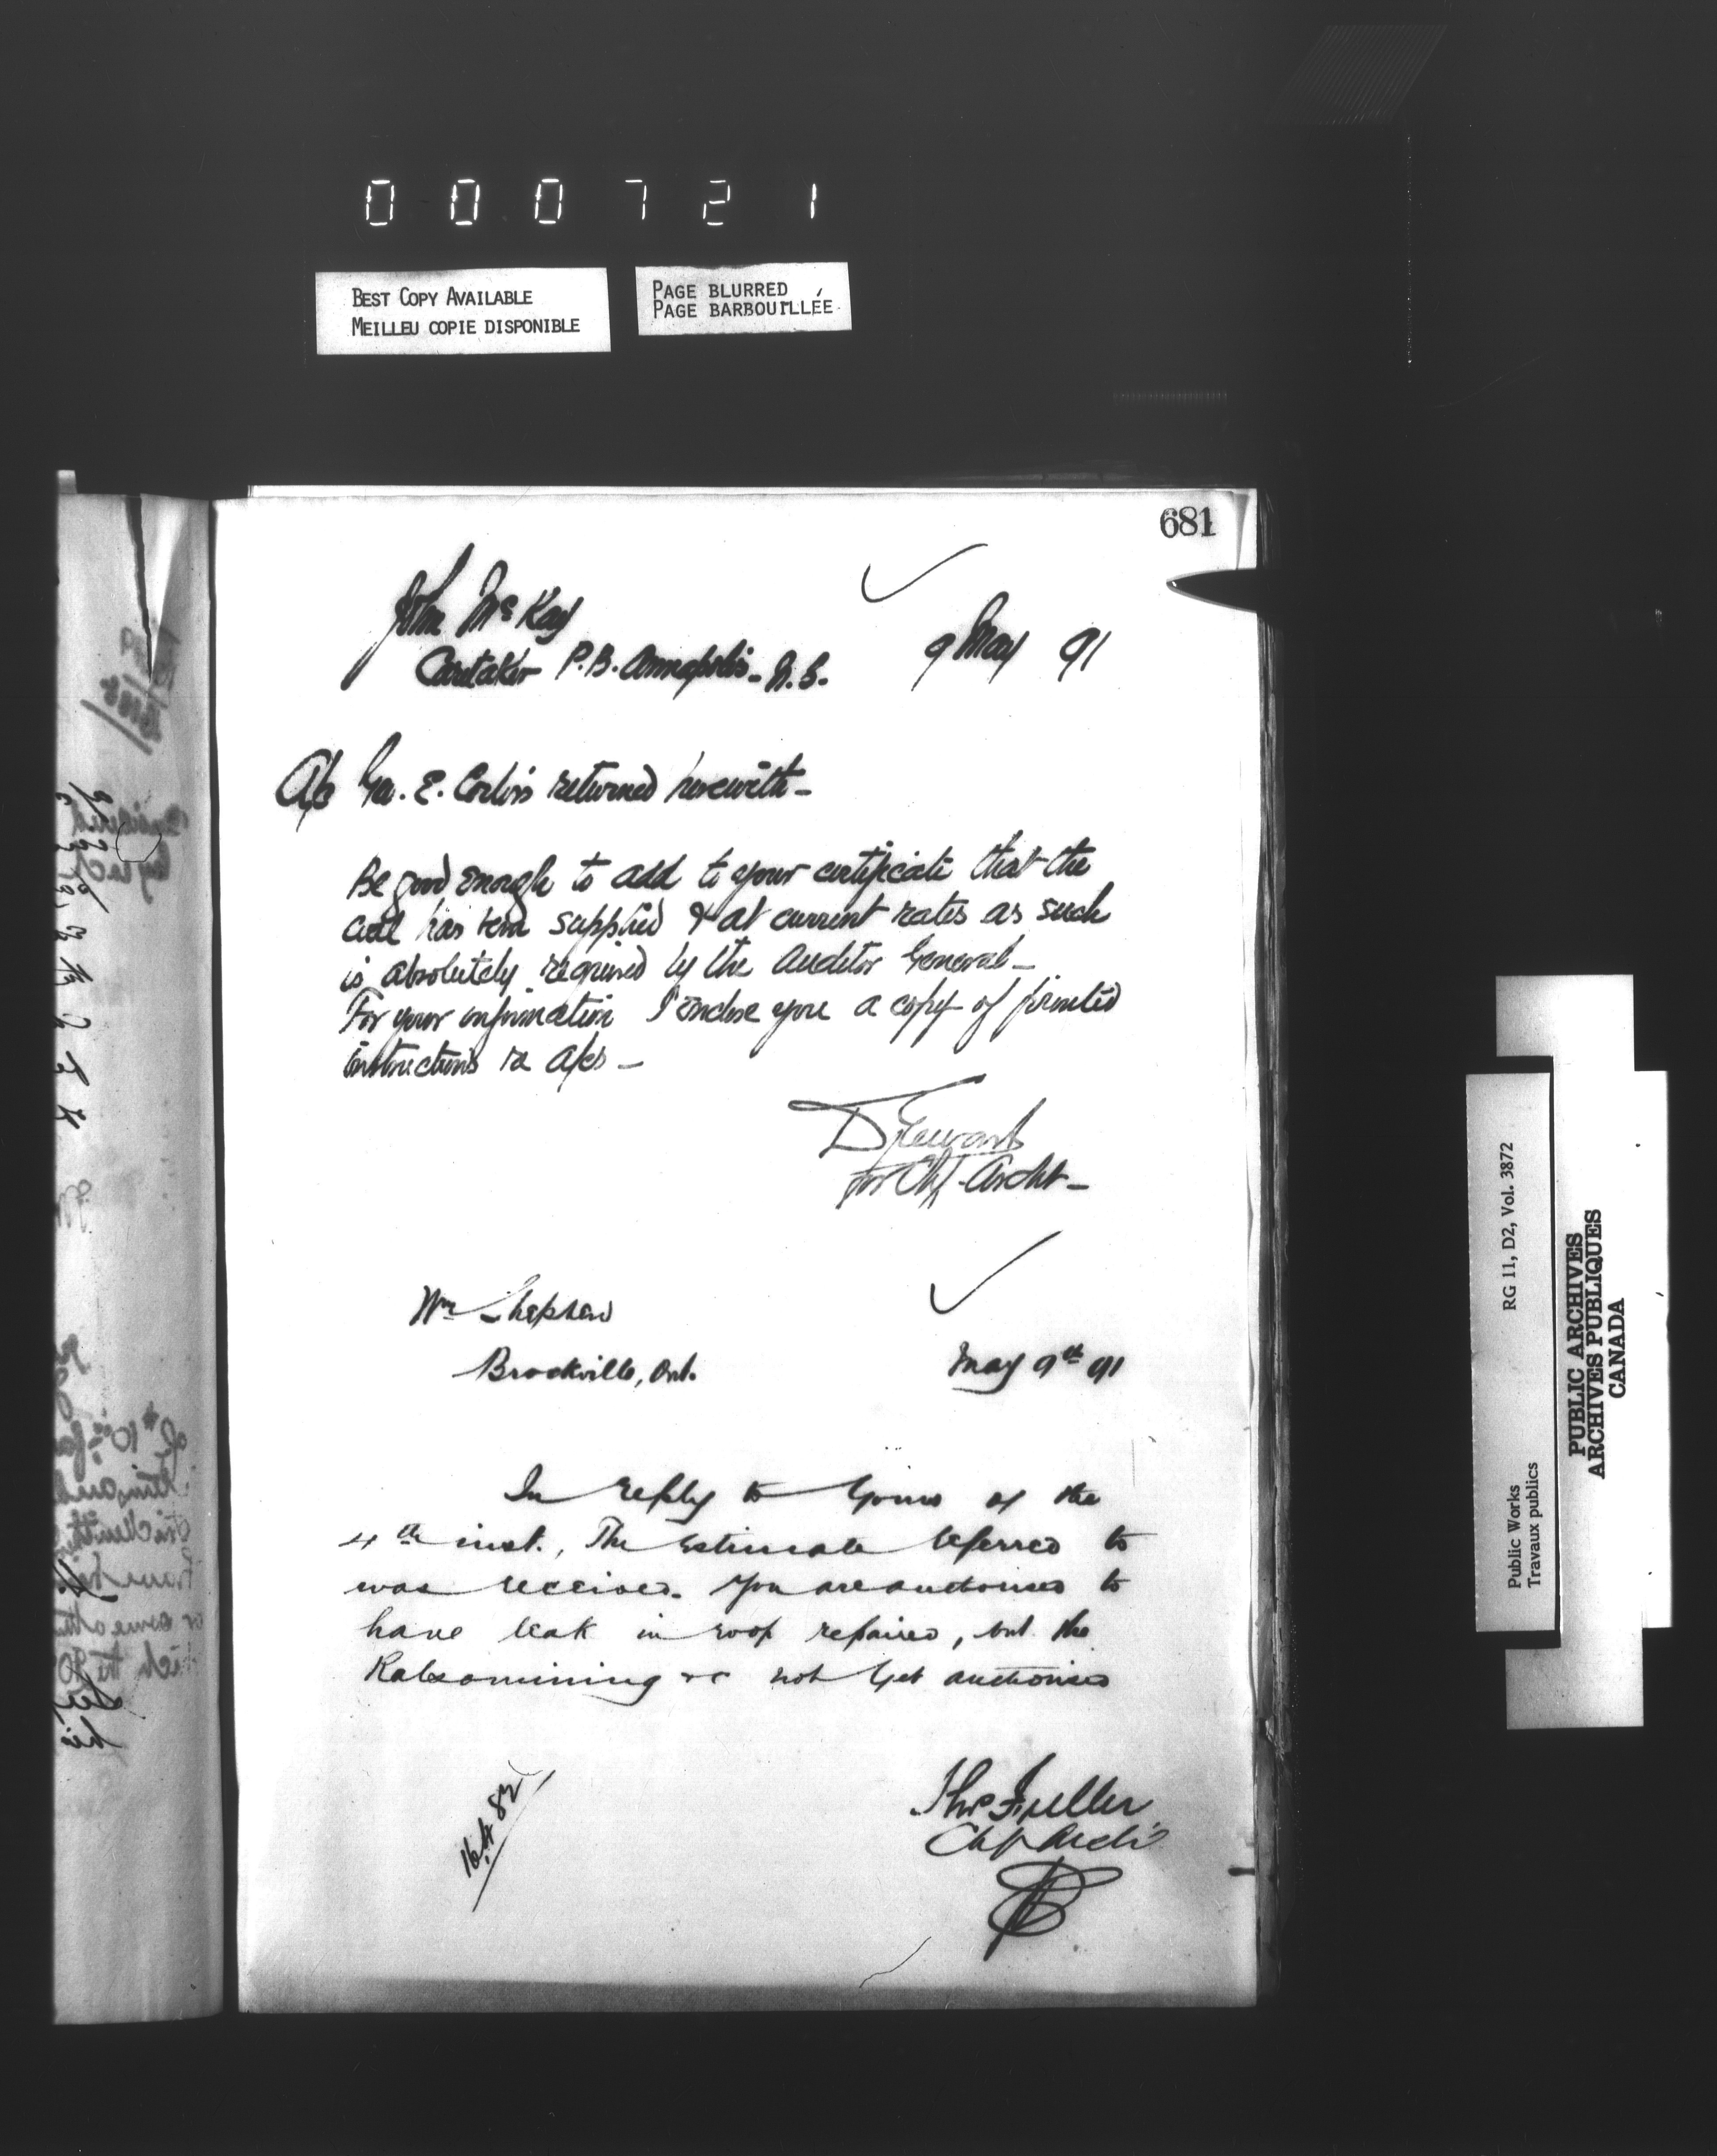 000721
BEST COPY AVAILABLE
MEILLEU COPIE DISPONIBLE
PAGE BLURRED
PAGE BARBOUILLÉE
681
John McKay
Caretaker P.B. Annapolis - N.S.
9 May 91
A/c Geo. E. Corbiss returned herewith -
Be good enough to add to your certificate that the
coal has been supplied & at current rates as such
is absolutely required by the Auditor General -
For your information I enclose you a copy of printed
instructions re a/cs -
D Stewart
for Chf. Archt -
Wm Shepherd
Brockville, Ont.
May 9th 91
In reply to Yours of the
4th inst., The estimate referred to
was received. You are authorised to
have leak in roof repaired, but the
Kalsomining &c not yet authorised
Thos Fuller
Chf Archt
RG 11, D2, Vol. 3872
Public Works
Travaux publics
PUBLIC ARCHIVES
ARCHIVES PUBLIQUES
CANADA